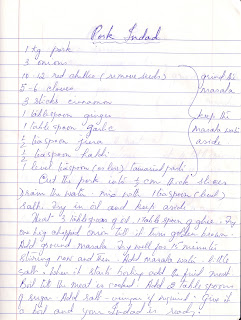 Pork Indad
1 kg pork
3 onions
10-12 red chillie (remove seeds)
5-6 cloves
3 sticks cinnamon
1 tablespoon ginger
1 tablespoon garlic
2 teaspoon jeera
1 teaspoon haldi
1 level teaspoon tamarind
grind the
masala
keep the
masala water
aside
Cut the pork into 3 cm thick slices
Drain the water. Mix with 1 teaspoon
salt. Fry in oil and keep aside.
Heat 3 tablespoon of oil, 1 table spoon of ghee. Fry
one big chopped onion till it turn golden brown.
Add ground masala. Fry well for 15 minutes
stirring now and then. Add masala water. little
salt. When it starts boiling add the fried meat
Boil till the meat is cooked. Add 2 tablespoons
of sugar. Add salt - vinegar if required. Give it
a boil and your Indad is ready.